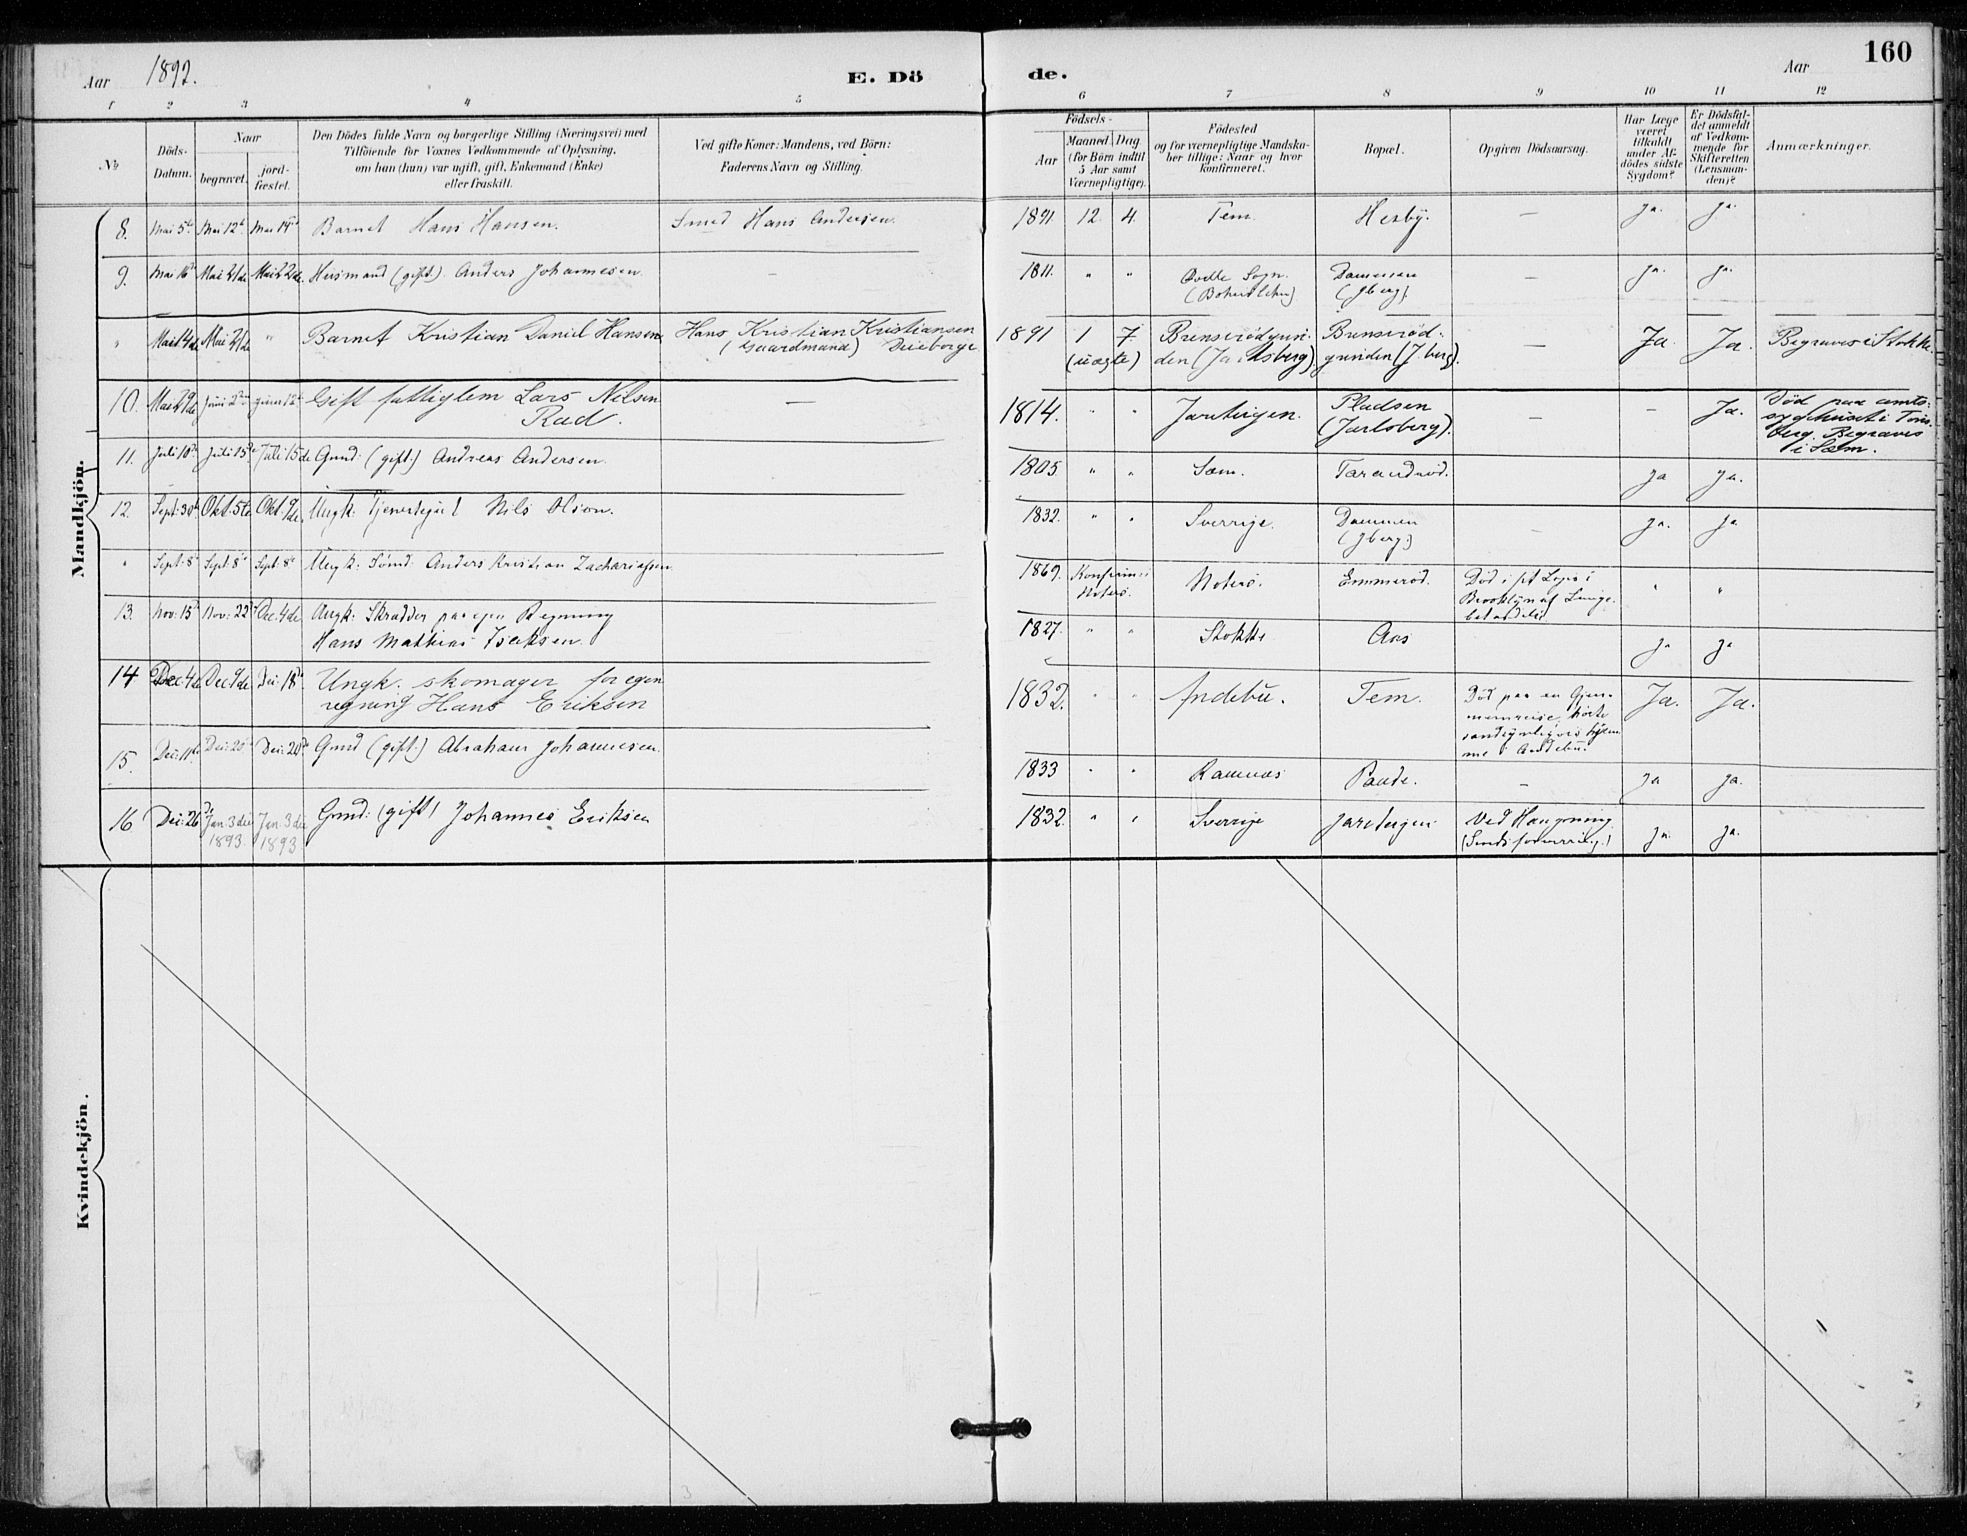 Aar 1892. E. Dö
de. Aar 160
1 2 3 4 5
6 7 8 9 10 11 12
№
Döds-
Datum.
Naar
begravet.
jord-
fæstet.
Den Dödes fulde Navn og borgerlige Stilling (Næringsvei) med
Tilföiende for Voxnes Vedkommende af Oplysning,
om han (hun) var ugift, gift, Enkemand (Enke)
eller fraskilt.
Ved gifte Koner: Mandens, ved Börn:
Faderens Navn og Stilling.
Födsels-
Aar
Maaned Dag
(for Börn indtil
5 Aar samt
Værnepligtige).
Födested
og for værnepligtige Mandska-
ber tillige: Naar og hvor
konfirmeret.
Bopæl.
Opgiven Dödsaarsag.
Har Læge
været
tilkaldt
under Af-
dödes sidste
Sygdom?
Er Dödsfal-
det anmeldt
af Vedkom-
mende for
Skifteretten
(Lensman-
den)?
Anmærkninger.
Mandkjön.
8. Mai 5te Mai 12te Mai 19de Barnet Hans Hansen. Smed Hans Andersen. 1891. 12. 4. Tem. Hesby. — Ja. Ja.
9. Mai 16de Mai 21de Mai 22de Husmand (gift). Anders Johannesen. — 1811. " " Sogn. Dammen — Ja. Ja.
(Jberg).
" Mai 14de Mai 21de " Barnet Kristian Daniel Hansen Hans Kristian Kristiansen 1891 1 7. Brunserødgrun- Brunserød- — Ja. Ja. Begraves i Stokke.
(Gaardmand) (uægte) den (Jarlsberg). grunden (J.berg).
10. Mai 29de Juni 2den Juni 12te Gift fattiglem Lars Nilsen — 1814. " " Jareteigen. Pladsen — — Ja. Død paa amts-
Rød. (Jarlsberg). sygehuset i Töns-
berg. Begraves
i Sæm.
11. Juli 10de Juli 15de Juli 15de Gmd: (gift.) Andreas Andersen. 1805 " " Sæm. Tarandrød. Ja Ja.
12. Sept: 30te Okt. 5te Okt. 9de Ungk. Tjenestegut Nils Olson. 1832. " " Sverrige. Dammen — Ja. Ja
(Jberg.)
" Sept: 8de Sept: 8de Sept: 8de Ungk: Sømd: Anders Kristian Zachariasen 1869. Konfirm: i Nøterø. Emmerød. Død i
Nøterø. Brooklyn af Lunge-
betændelse
13. Nov: 15de Nov: 22de Dec. 4de Ungk: Skrædder paa egen Regning 1827. " " Stokke Aas Ja Ja
Hans Mathias Isaksen.
14 Dec 4de Dec 9de Dec. 18de Ungk. skomager for egen 1832. " " Andebu. Tem. Død paa en Gjen- Ja. Ja.
regning Hans Eriksen
sandsynligvis hjem-
me i Andebu.
15. Dec: 11te Dec: 20de Dec: 20de Gmd (gift.) Abraham Johannesen. 1833 " " Ramnæs Paude. — Ja Ja.
16 Dec: 26de Jan. 3die Jan. 3die Gmd: (gift) Johannes Eriksen 1832. " " Sverrige Jareteigen Ved Hængning Ja. Ja.
1893. 1893 (Sindsforvirring.)
Kvindekjön.